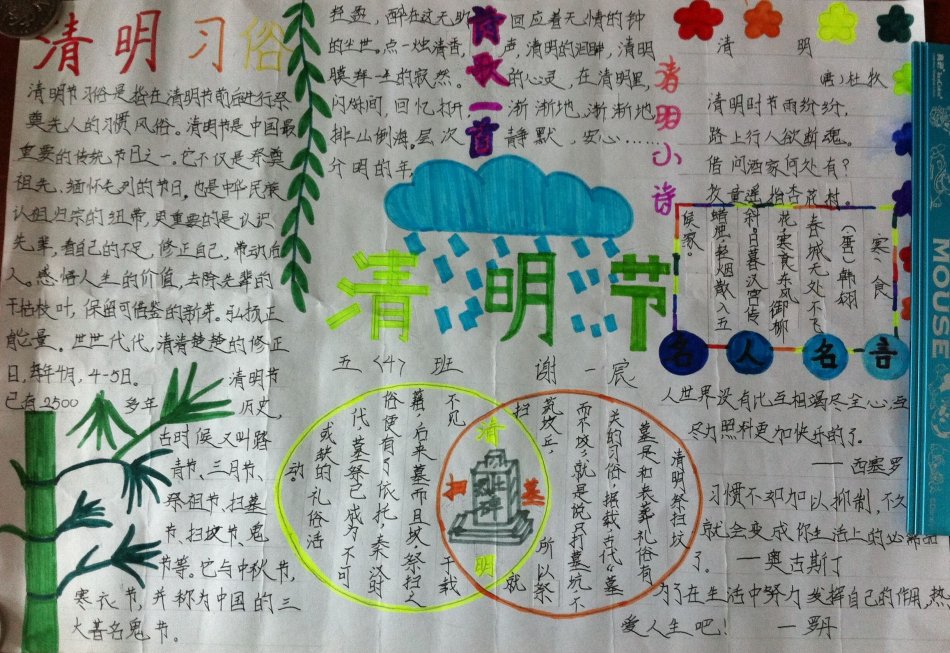 清明习俗
清明节习俗是指在清明节前后进行祭
奠先人的习惯风俗。清明节是中国最
重要的传统节日之一。它不仅是祭奠
祖先、缅怀先烈的节日,也是中华民族
认祖归宗的纽带,更重要的是认识
先辈,看自己的不足,修正自己,带动后
人。感悟人生的价值,去除先辈的
干枯枝叶,保留可借鉴的新芽。弘扬正
能量。世世代代,清清楚楚的修正
日,每年4月,4-5日。清明节
已有2500多年历史,
古时候又叫踏
青节、三月节、
祭祖节、扫墓
节、扫坟节、鬼
节等。它与中秋节,
寒衣节,并称为中国的三
大著名鬼节。
诗歌一首
轻盈,醉在这天助
的尘世。点一烛清香,
膜拜一的寂然。
闪烁间,回忆打开,
排山倒海。层次
分明的年,
回应着天情的钟
声,清明的泪眸,清明
的心灵,在清明里,
渐渐地,渐渐地
静默,安心……
清明小诗
清明
(唐)杜牧
清明时节雨纷纷,
路上行人欲断魂。
借问酒家何处有?
牧童遥指杏花村。
寒食
(唐)韩翃
春城无处不飞
花,寒食东风御柳
斜。日暮汉宫传
蜡烛,轻烟散入五
侯家。
清明节
五〈4〉班 谢一宸
清明祭扫坟
墓尽和丧葬礼俗有
关的习俗,据载,古代“墓
而不坟”,就是说只打墓坑,不
筑坟丘,所以祭
扫就
不见于载
籍。后来墓而且坟,祭扫之
俗便有了依托。秦汉时
代,墓祭已成为不可
或缺的礼俗活
动。
清明
扫墓
烈士碑
名人名言
人世界没有比互相竭尽全心互
尽力照料更加快乐的了。
——西塞罗
习惯不如加以抑制,不久
就会变成你生活上的必需品
了。——奥古斯丁
为了在生活中努力发挥自己的作用,热
爱人生吧!——罗丹
MOUSE